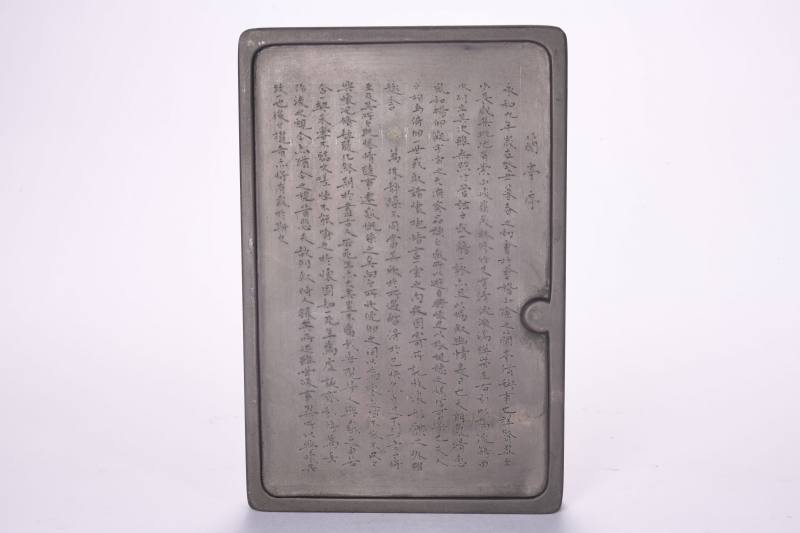 蘭亭序
永和九年歲在癸丑暮春之初會於會稽山陰之蘭亭脩稧事也群賢畢至
少長咸集此地有崇山峻嶺茂林脩竹又有清流激湍暎帶左右引以為流觴曲
水列坐其次雖無絲竹管弦之盛一觴一詠亦足以暢敘幽情是日也天朗氣清惠
風和暢仰觀宇宙之大俯察品類之盛所以遊目騁懷足以極視聽之娛信可樂也夫人
之相與俯仰一世或取諸懷抱悟言一室之內或因寄所託放浪形骸之外雖
趣舍萬殊靜躁不同當其欣於所遇暫得於己快然自足不知老之將
至及其所之既惓情隨事遷感慨係之矣向之所欣俛仰之間以為陳跡猶不能不以之
興懷況脩短隨化終期於盡古人云死生亦大矣豈不痛哉每覽昔人興感之由若
合一契未嘗不臨文嗟悼不能喻之於懷固知一死生為虛誕齊彭殤為妄
作後之視今亦猶今之視昔悲夫故列敘時人錄其所述雖世殊事異所以興懷其
致一也後之攬者亦將有感於斯文